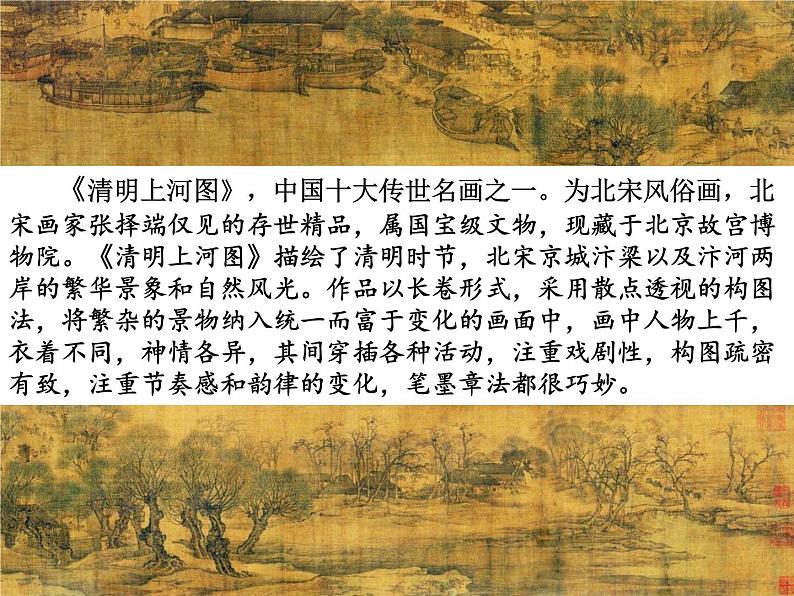 《清明上河图》，中国十大传世名画之一。为北宋风俗画，北
宋画家张择端仅见的存世精品，属国宝级文物，现藏于北京故宫博
物院。《清明上河图》描绘了清明时节，北宋京城汴梁以及汴河两
岸的繁华景象和自然风光。作品以长卷形式，采用散点透视的构图
法，将繁杂的景物纳入统一而富于变化的画面中，画中人物上千，
衣着不同，神情各异，其间穿插各种活动，注重戏剧性，构图疏密
有致，注重节奏感和韵律的变化，笔墨章法都很巧妙。